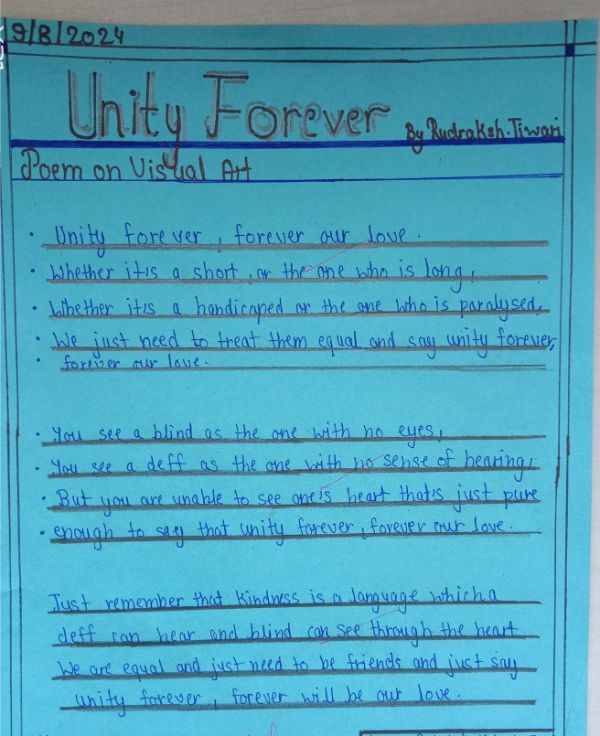 9/8/2024
Unity Forever
By Rudraksh.Tiwari
Poem on Visual Art
• Unity forever, forever our love.
• Whether it's a short, or the one who is long,
• Whether it's a handicaped or the one who is paralysed,
• We just need to treat them equal and say unity forever,
• forever our love.
• You see a blind as the one with no eyes,
• You see a deff as the one with no sense of hearing,
• But you are unable to see one's heart that's just pure
• enough to say that unity forever, forever our love.
Just remember that kindness is a language which a
deff can hear and blind can see through the heart
We are equal and just need to be friends and just say
unity forever, forever will be our love.